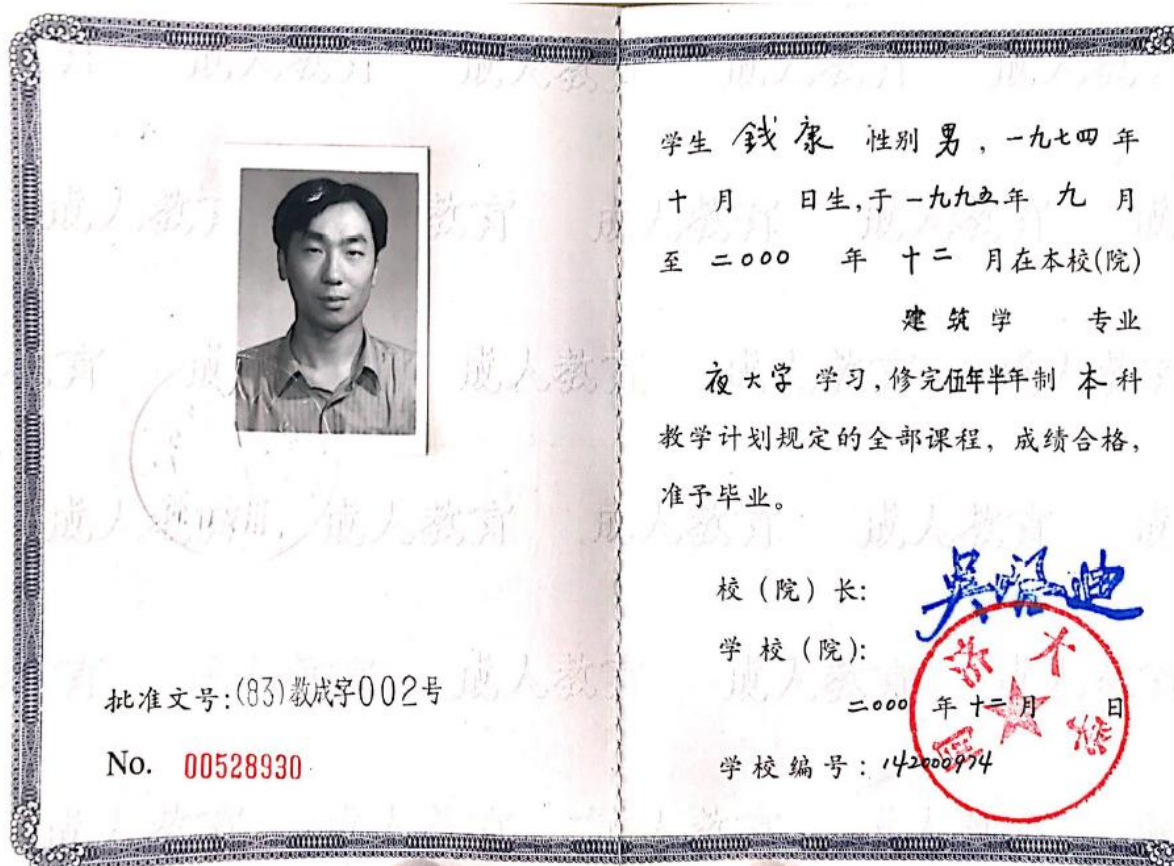 批准文号:(83)教成字002号
No. 00528930
学生 錢康 性别 男, 一九七四年
十月 日生,于一九九五年 九 月
至 二000 年 十二 月在本校(院)
建筑学 专业
夜大学 学习,修完伍年半年制 本科
教学计划规定的全部课程, 成绩合格,
准予毕业。
校(院)长: 吴啓迪
学校(院):
同济大学
二000 年十二月 日
学校编号: 142000974
成人教育